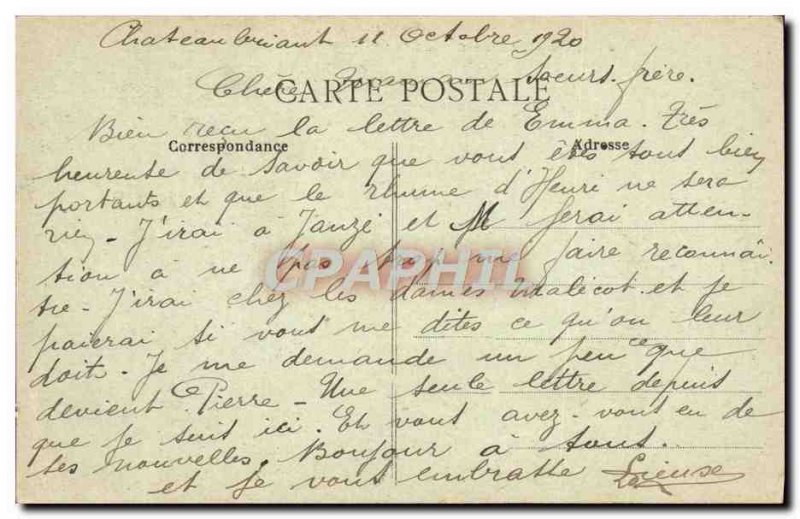 Chateaubriant 11 Octobre 1920
Chère soeurs. frère.
CARTE POSTALE
Bien reçu la lettre de Emma. Très
Correspondance Adresse
heureuse de savoir que vous êtes tous bien
portants et que le rhume d'Henri ne sera
rien - J'irai à Janzé et ferai atten-
tion à ne pas trop me faire reconnaî-
CPAPHIL
tre - J'irai chez les dames Malicot et je
paierai si vous me dites ce qu'on leur
doit. Je me demande un peu ce que
devient Pierre - Une seule lettre depuis
que je suis ici. Et vous avez-vous eu de
ses nouvelles. Bonjour à tous.
et je vous embrasse